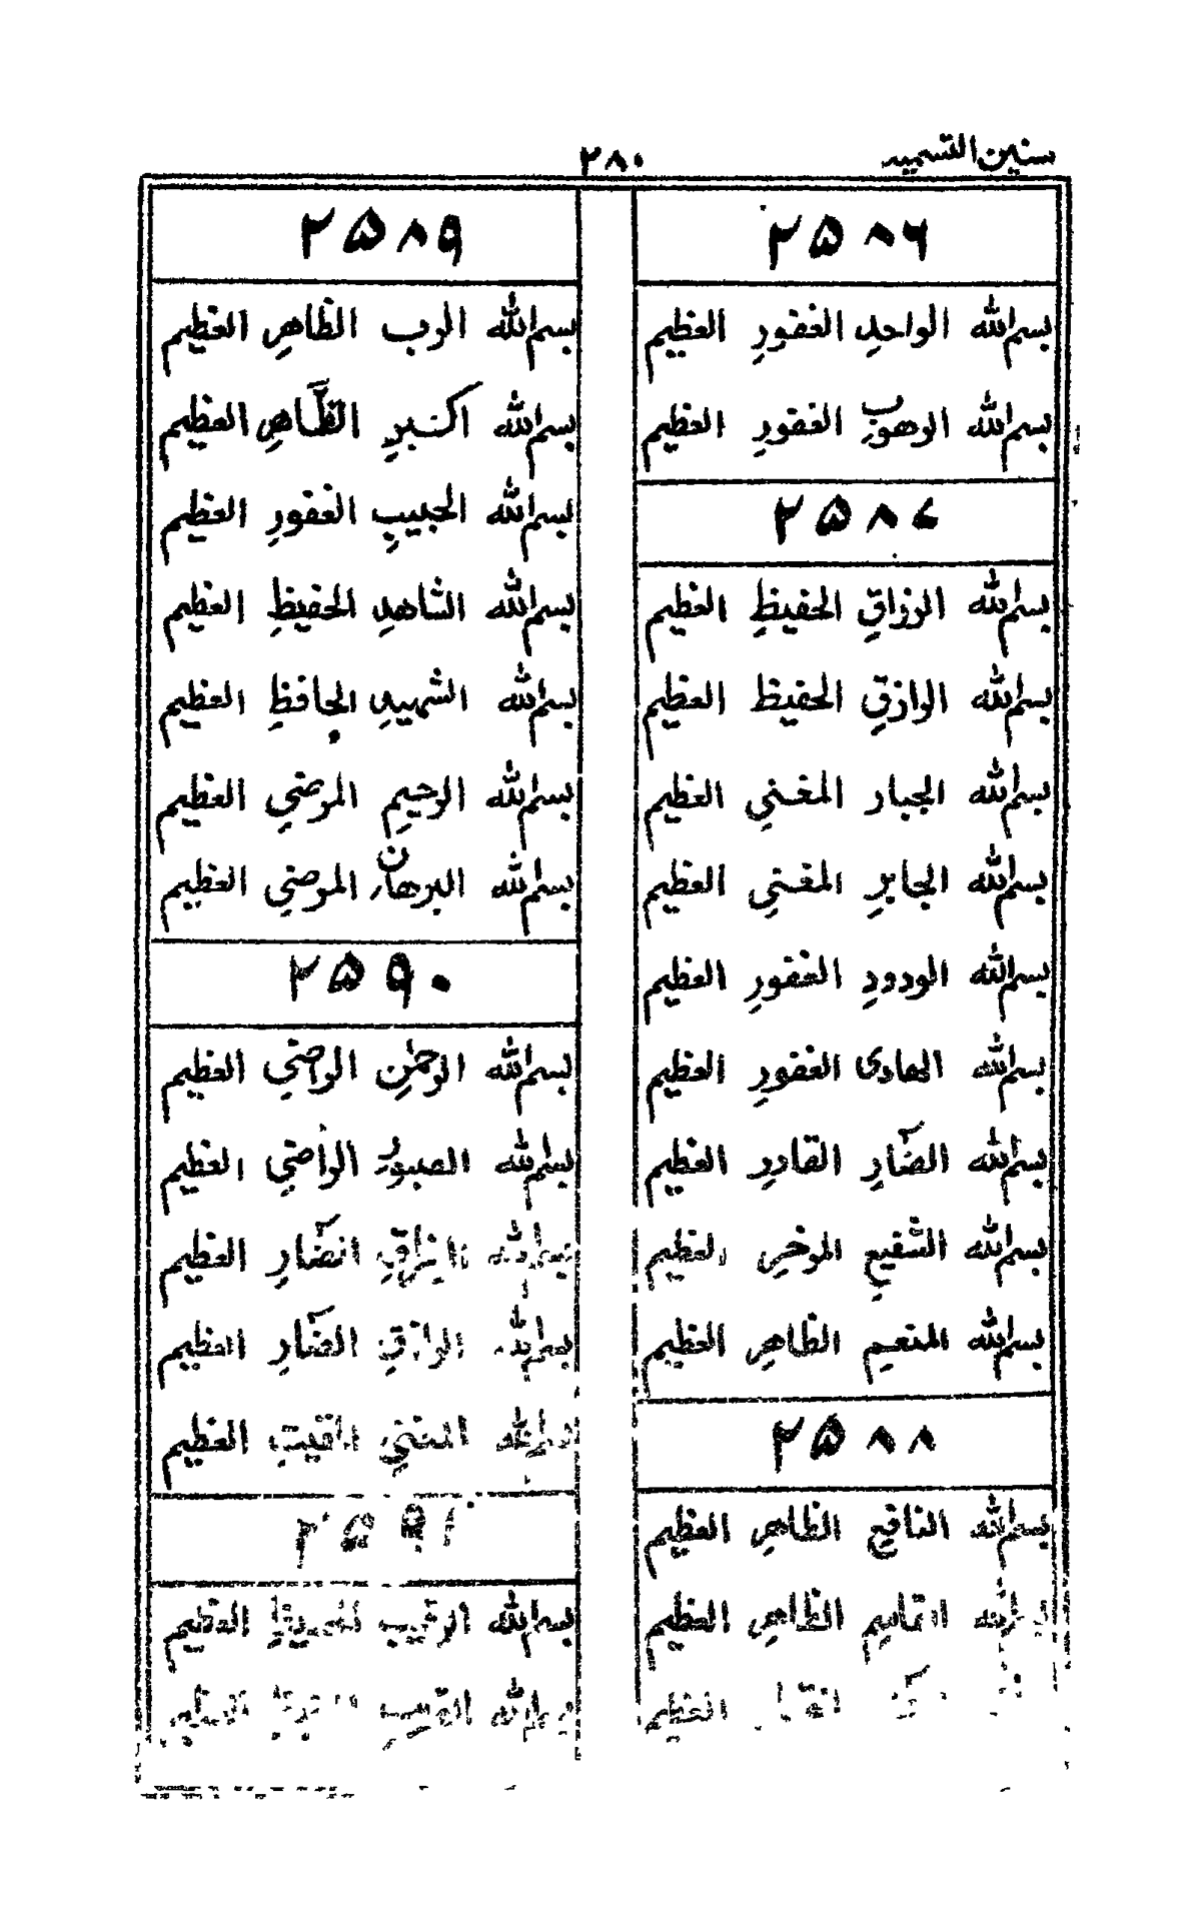 سنين التسميه
٢٨٠
٢٥٨٦
بسم الله الواحدِ الغفورِ العظيم
بسم الله الوهوبِ الغفورِ العظيم
٢٥٨٧
بسم الله الرزاقِ الحفيظِ العظيم
بسم الله الرازقِ الحفيظ العظيم
بسم الله الجبار المغنيِ العظيم
بسم الله الجابرِ المغنيِ العظيم
بسم الله الودودِ الغفورِ العظيم
بسم الله الهادى الغفورِ العظيم
بسم الله الضّارِ القادرِ العظيم
بسم الله الشفيعِ الموخرِ العظيم
بسم الله المنعمِ الظاهرِ العظيم
٢٥٨٨
بسم الله النافعِ الظاهرِ العظيم
الله القاسمِ الظاهرِ العظيم
العظيم
٢٥٨٩
بسم الله الرب الظاهرِ العظيم
بسم الله اكبيرِ الظّاهرِ العظيم
بسم الله الحبيبِ الغفورِ العظيم
بسم الله الشاهدِ الحفيظِ العظيم
بسم الله الشهيدِ الحافظِ العظيم
بسم الله الرحيمِ المرضيِ العظيم
بسم الله البرهانِ المرضيِ العظيم
٢٥٩٠
بسم الله الرحمٰنِ الراضيِ العظيم
بسم الله الصبورِ الراضيِ العظيم
بسم الله الضّارِ العظيم
بسم الله الرازقِ الضّارِ العظيم
بسم الله المغنيِ المقيتِ العظيم
٢٥٩١
بسم الله الرقيبِ العظيم
بسم الله